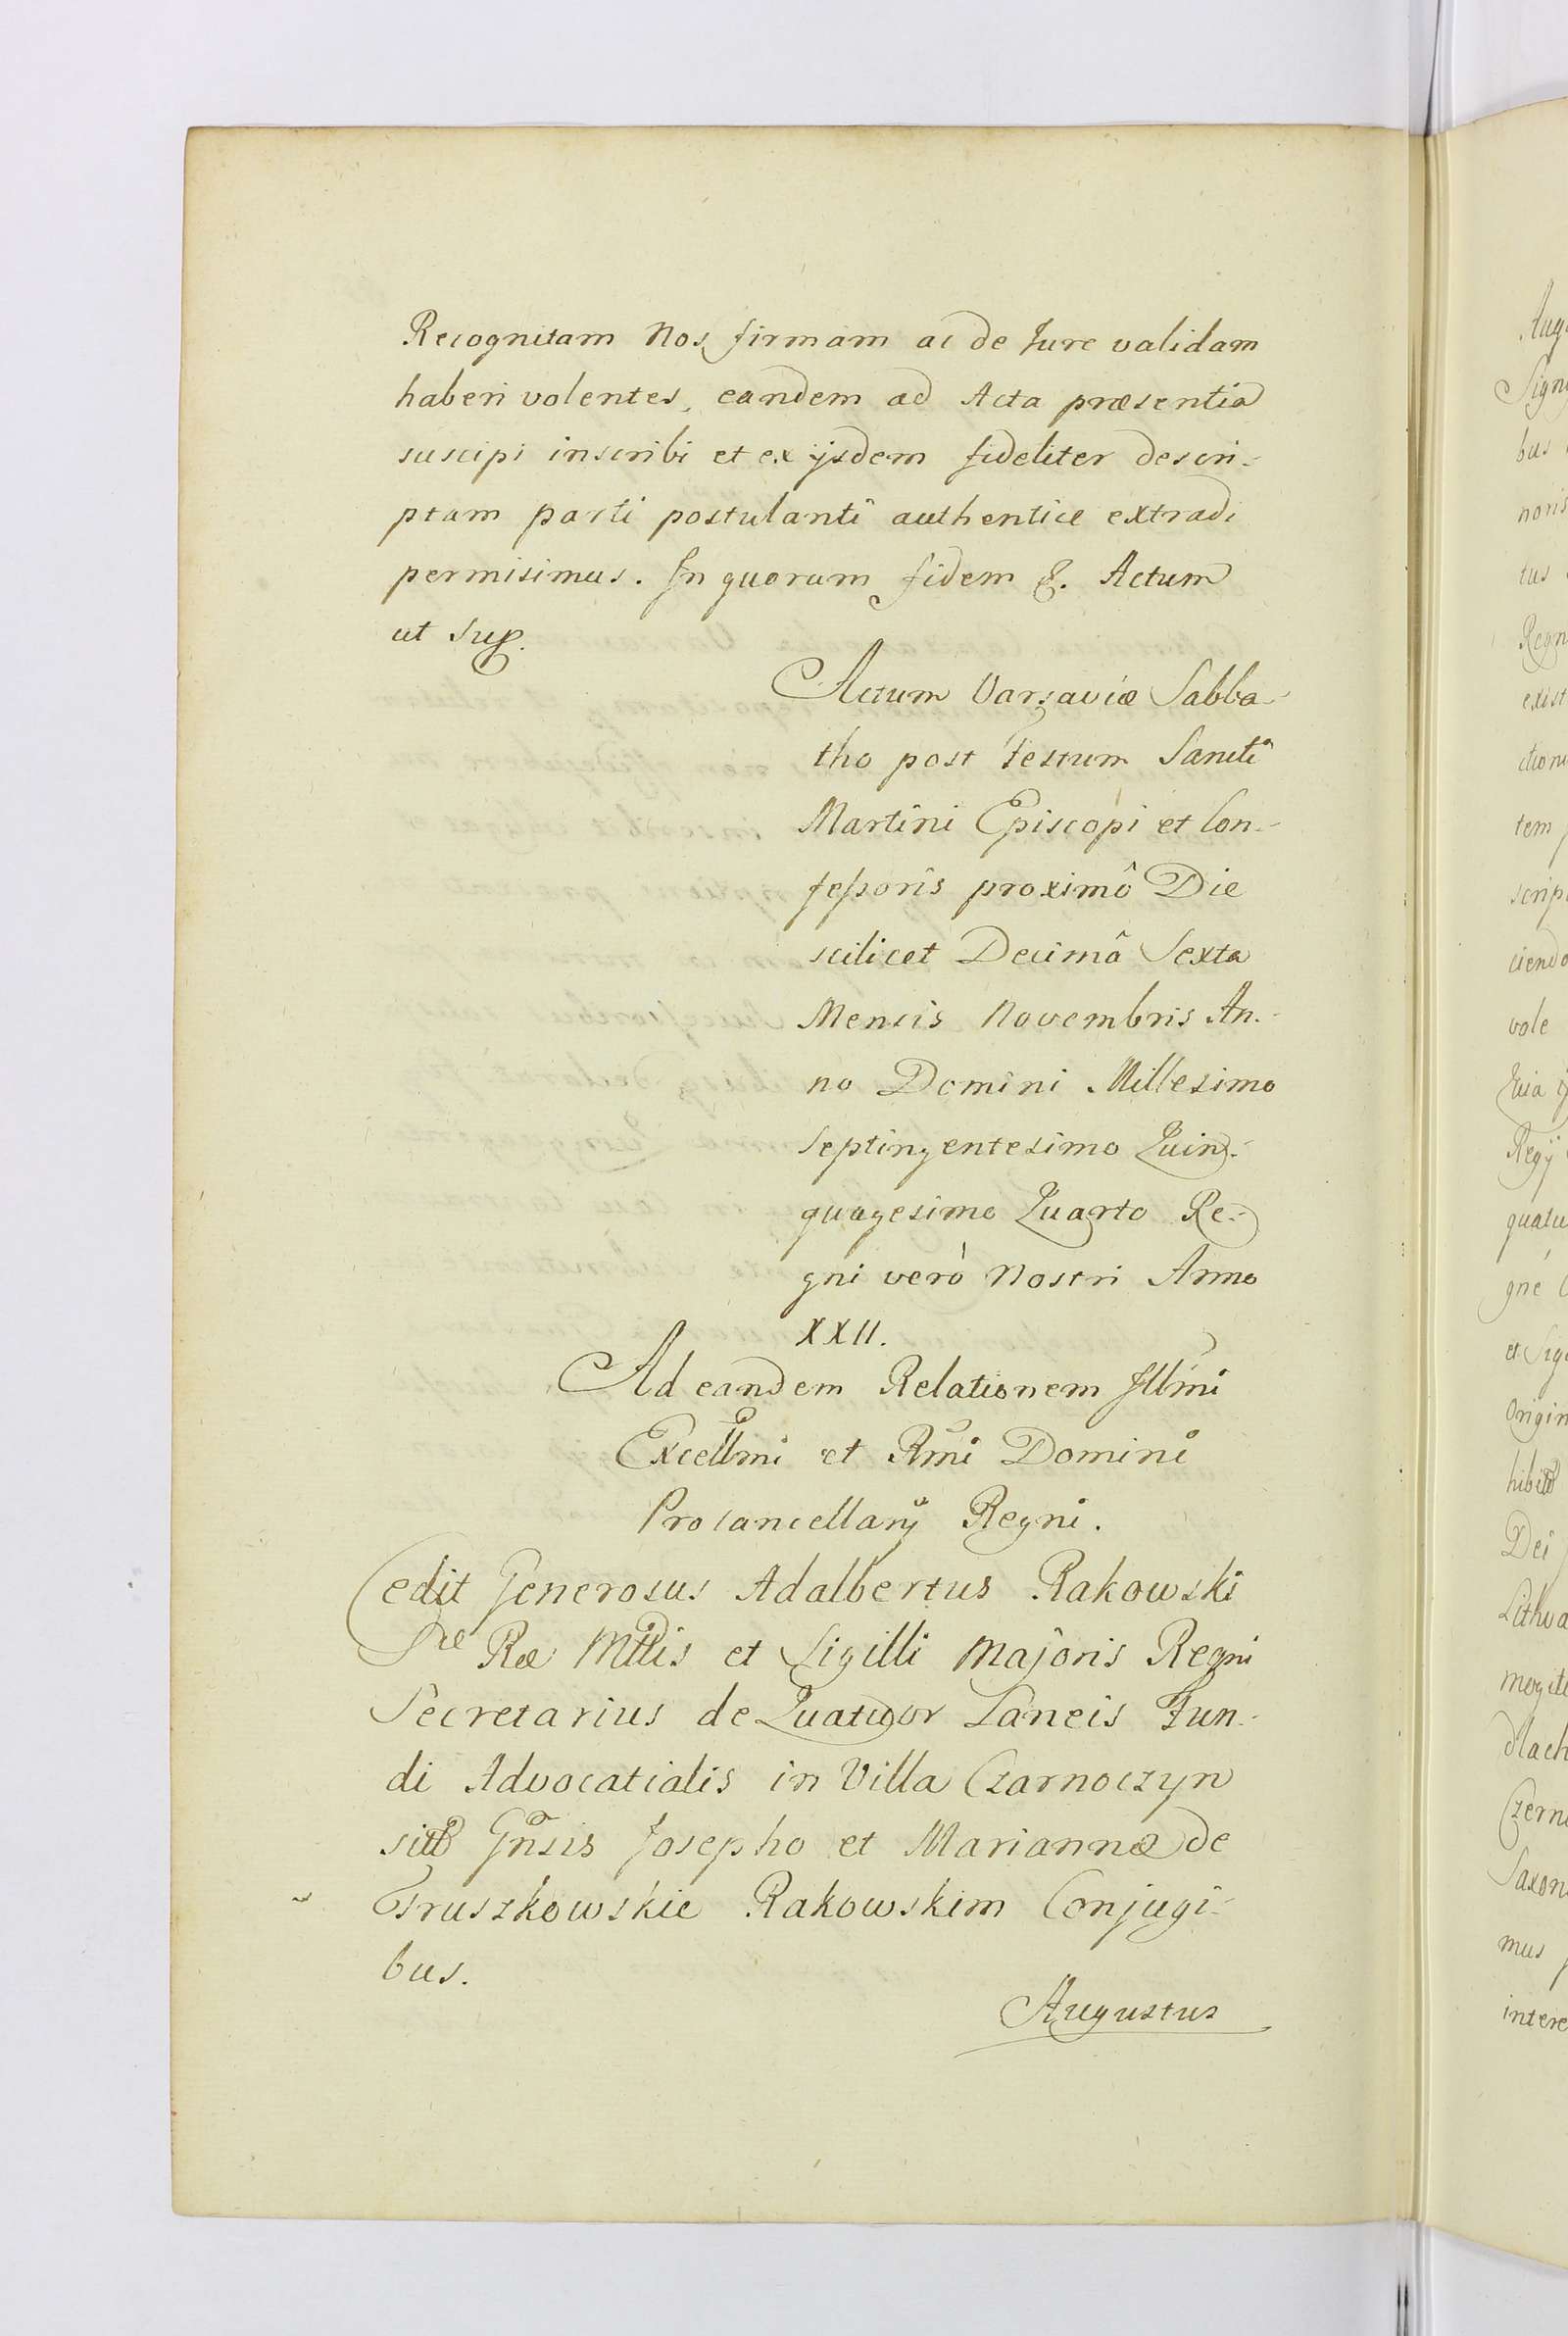 Recognitam Nos firmam ac de Jure validam
haberi volentes, eandem ad Acta præsentia
suscipi inscribi et ex ijsdem fideliter descri-
ptam parti postulanti authentice extradi
permisimus. In quorum fidem &. Actum
ut sup.
Actum Varsaviæ Sabba-
tho post Festum Sancti
Martini Episcopi et Con-
feßoris proximô Die
scilicet Decimâ Sexta
Mensis Novembris An-
no Domini Millesimo
Septingentesimo Quin-
quagesimo Quarto Re-
gni verò Nostri Anno
XXII.
Ad eandem Relationem Illmi
Excellmi et Rmi Domini
Procancellarij Regni.
Cedit Generosus Adalbertus Rakowski
Sræ Ræ Mttis et Sigilli Majoris Regni
Secretarius de Quatuor Laneis Fun-
di Advocatialis in Villa Czarnoczyn
Gnsis Josepho et Mariannæ de
Gruszkowskie Rakowskim Conjugi-
bus.
Augustus
Aug
Sign
bus
noris
tus
Regn
exist
ction
tem
scrip
ciendo
vole
Regij
quatu
gne
et Sig
Origin
Dei
Lithua
dlach
Czern
Saxon
mus
intere